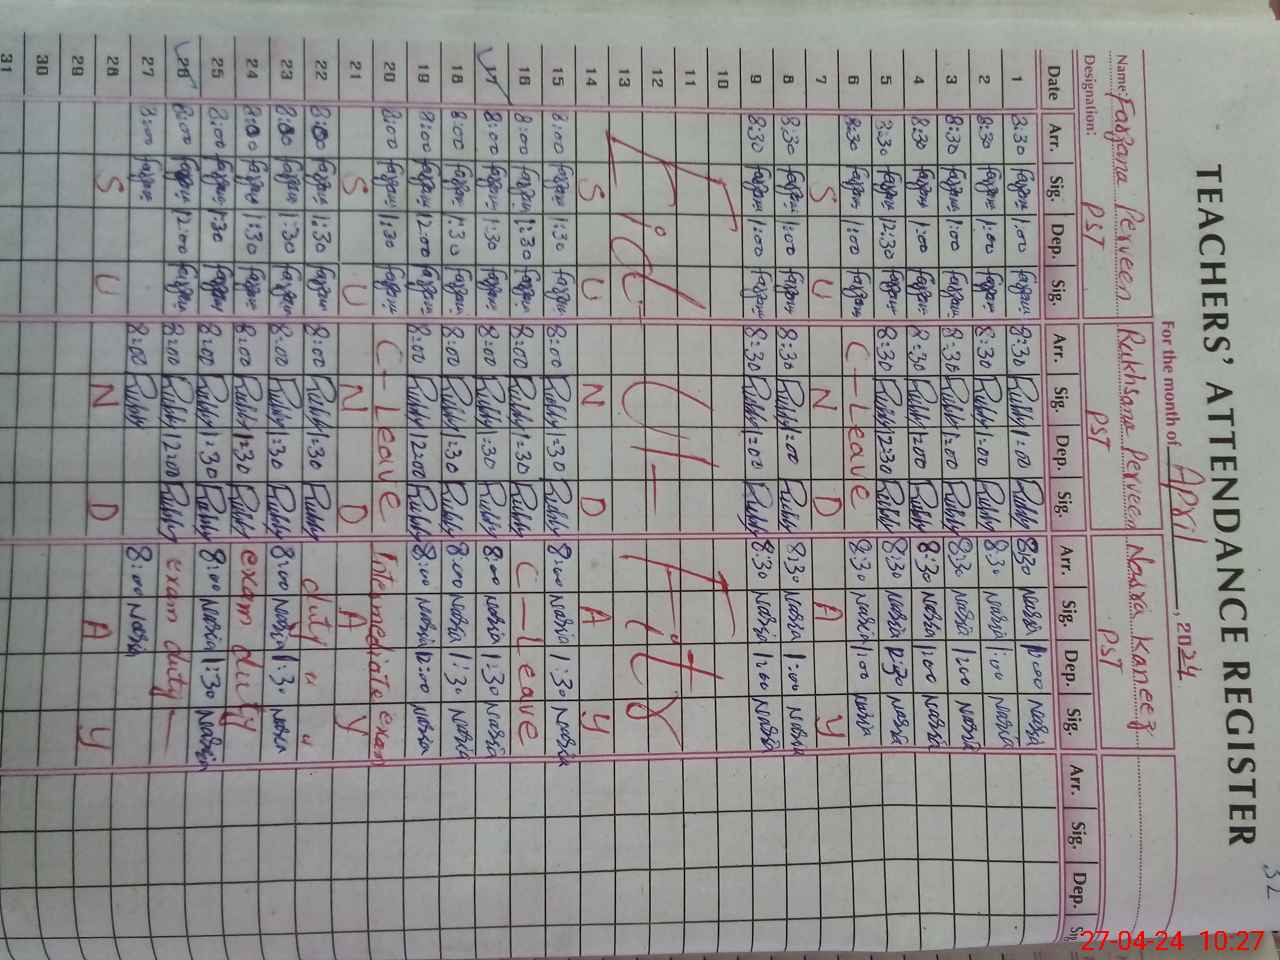 32
TEACHERS' ATTENDANCE REGISTER
For the month of April, 2024
Name: Farzana Perveen Rukhsana Perveen Nasra Kaneez
Designation: PST PST PST
Date Arr. Sig. Dep. Sig. Arr. Sig. Dep. Sig. Arr. Sig. Dep. Sig. Arr. Sig. Dep. Sig
1 8:30 farzana 1:00 farzana 8:30 Rubby 1:00 Rubby 8:30 Nasra 1:00 Nasra
2 8:30 farzana 1:00 farzana 8:30 Rubby 1:00 Rubby 8:30 Nasra 1:00 Nasra
3 8:30 farzana 1:00 farzana 8:30 Rubby 1:00 Rubby 8:30 Nasra 1:00 Nasra
4 8:30 farzana 1:00 farzana 8:30 Rubby 1:00 Rubby 8:30 Nasra 1:00 Nasra
5 8:30 farzana 12:30 farzana 8:30 Rubby 12:30 Rubby 8:30 Nasra 12:30 Nasra
6 8:30 farzana 1:00 farzana C-Leave 8:30 Nasra 1:00 Nasra
7 S U N D A Y
8 8:30 farzana 1:00 farzana 8:30 Rubby 1:00 Rubby 8:30 Nasra 1:00 Nasra
9 8:30 farzana 1:00 farzana 8:30 Rubby 1:00 Rubby 8:30 Nasra 1:00 Nasra
10
11
12 Eid-Ul-Fitr
13
14 S U N D A Y
15 8:00 farzana 1:30 farzana 8:00 Rubby 1:30 Rubby 8:00 Nasra 1:30 Nasra
16 8:00 farzana 1:30 farzana 8:00 Rubby 1:30 Rubby C-Leave
17 8:00 farzana 1:30 farzana 8:00 Rubby 1:30 Rubby 8:00 Nasra 1:30 Nasra
18 8:00 farzana 1:30 farzana 8:00 Rubby 1:30 Rubby 8:00 Nasra 1:30 Nasra
19 8:00 farzana 12:00 farzana 8:00 Rubby 12:00 Rubby 8:00 Nasra 12:00 Nasra
20 8:00 farzana 1:30 farzana C-Leave Intermediate exam
21 S U N D A Y
22 8:00 farzana 1:30 farzana 8:00 Rubby 1:30 Rubby duty " "
23 8:00 farzana 1:30 farzana 8:00 Rubby 1:30 Rubby 8:00 Nasra 1:30 Nasra
24 8:00 farzana 1:30 farzana 8:00 Rubby 1:30 Rubby exam duty
25 8:00 farzana 1:30 farzana 8:00 Rubby 1:30 Rubby 8:00 Nasra 1:30 Nasra
26 8:00 farzana 12:00 farzana 8:00 Rubby 12:00 Rubby exam duty
27 8:00 farzana 8:00 Rubby 8:00 Nasra
28 S U N D A Y
29
30
31
27-04-24 10:27